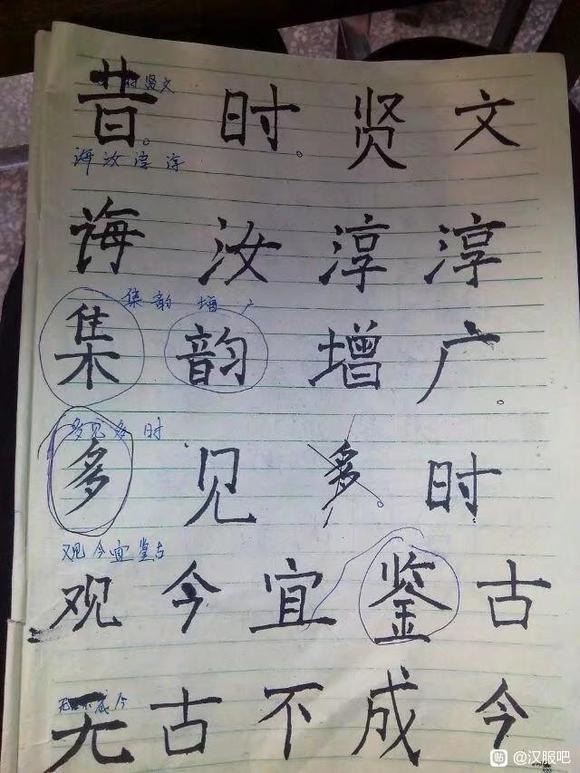 昔时贤文
时贤文
诲汝淳淳
诲汝淳淳
集韵增广
集韵增广
多见多时
多见多时
观今宜鉴古
观今宜鉴古
无古不成今
@汉服吧